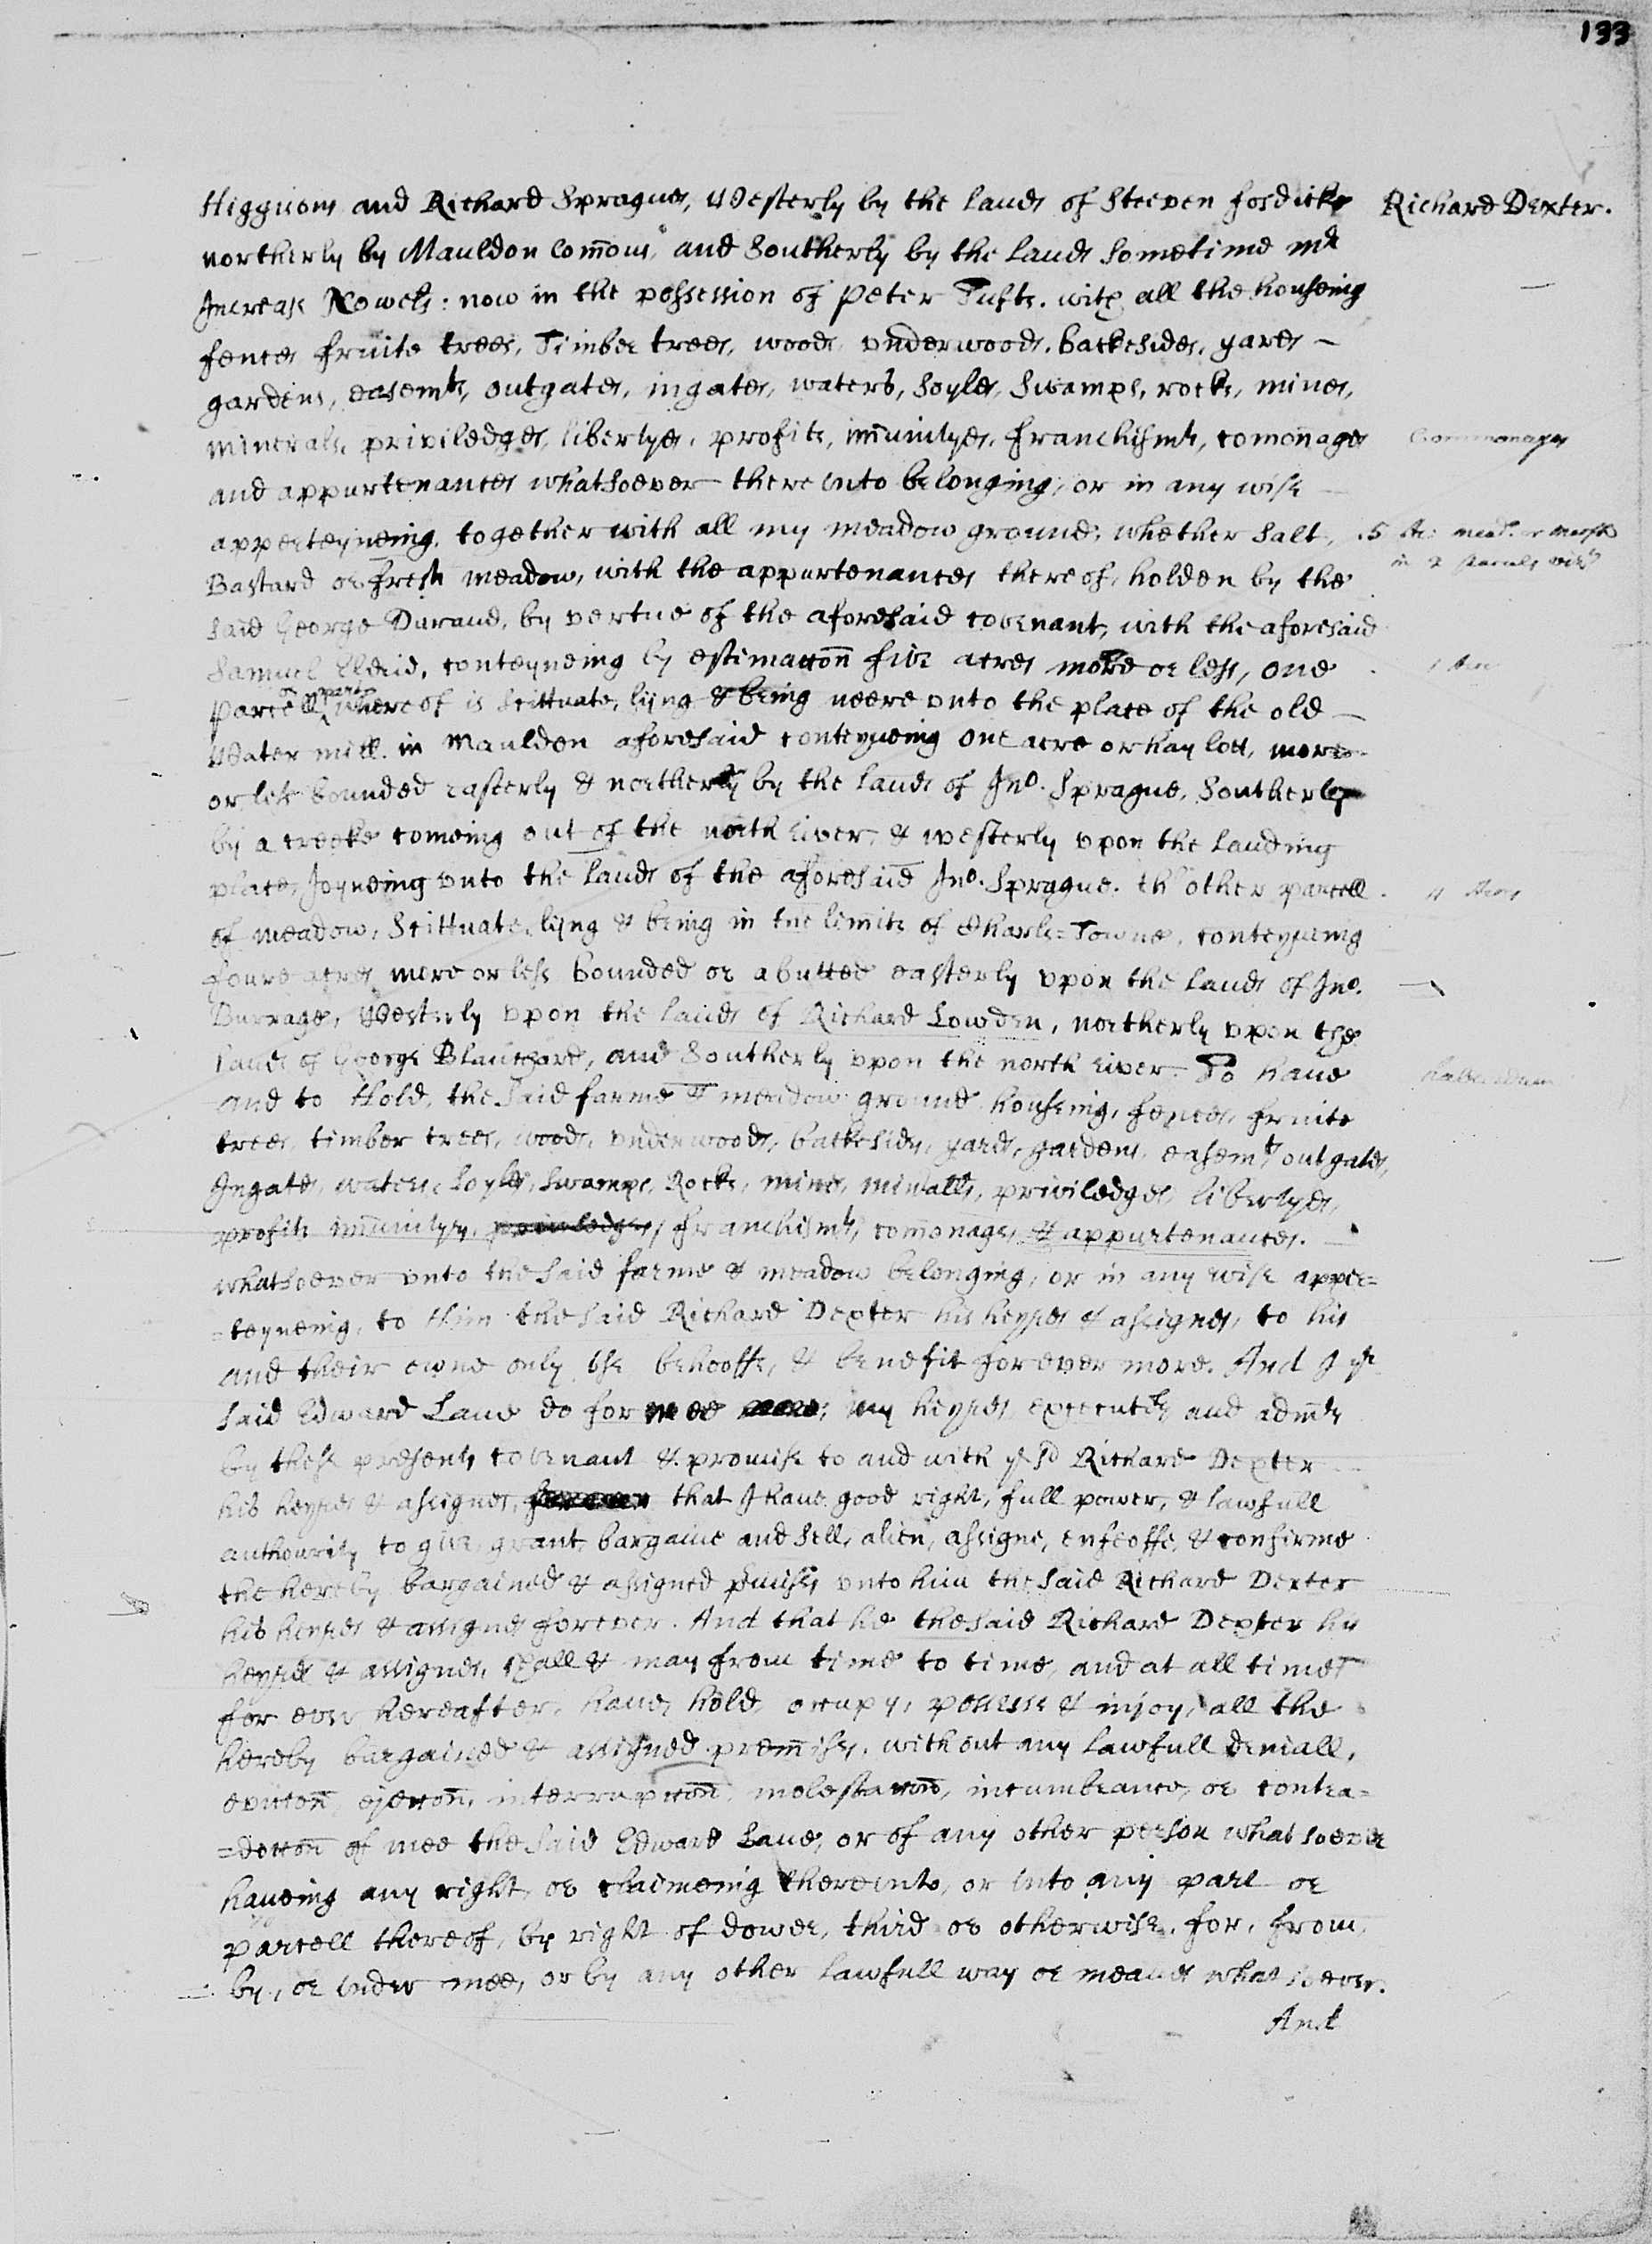 133
Higginom and Richard Sprague, Westerly by the lands of Steeven fosdicke
Richard Dexter.
northerly by Mauldon Com̄ons, and Southerly by the lands sometime mr
Increase Nowels: now in the possession of Peter Tufts. with all the houseing
fences fruite trees, Timber trees, woods, vnderwoods, backesides, yards –
gardens, easemts, outgates, ingates, waters, soyles, Swamps, rocks, mines,
minerals, priviledges, libertyes, profits, im̄unityes, franchismts, com̄onages
Commonages
and appurtenances whatsoever thereunto belonging, or in any wise
apperteyneing. together with all my meadow ground, whether Salt,
5 Ac: mead. or
in 2
Bastard or fresh meadow, with the appurtenances thereof, holden by the
said George Durand, by vertue of the aforesaid covenant, with the aforesaid
Samuel Eldrid, conteyneing by estimaccon̄ five acres more or less, one
1 Acr
or part
Parcell, whereof is scittuate, lijng & being neere vnto the place of the old –
Water mill. in Mauldon aforesaid conteyneing one acre or hay lott, more
or less bounded easterly & northerly by the lands of Jno. Sprague, Southerly
by a creeke comeing out of the north river, & westerly vpon the landing
place, Joyneing vnto the lands of the aforesaid Jno. Sprague. th' other parcell
4 Acrs
of meadow, Scittuate, lijng & being in the limits of Charls=Towne, conteyneing
foure acres more or less bounded or abutted easterly vpon the lands of Jno.
Burrage, Westerly vpon the lands of Richard Lowden, northerly vpon the
lands of George Blanchard, and Southerly vpon the north river. To haue
Habendum
and to Hold, the said farme & meadow ground housing, fences, fruite
trees, timber trees, woods, vnderwoods, backsides, yards, gardens, easemts, outgates,
Ingates, waters, soyles, swamps, Rocks, mines, minralls, priviledges, libertyes,
profits im̄unityes, priviledges, franchismts, com̄onages, & appurtenances.
whatsoever vnto the said farme & meadow belonging, or in any wise apper=
=teyneing, to Him the said Richard Dexter his heyres & assignes, to his
and their owne only use behooffe, & benefit for ever more. And I ye
said Edward Lane do for mee my heyres executrs and admrs
by these presents covenant & promise to and with ye sd Richard Dexter
his heyres & assignes, forever that I haue good right, full power, & lawfull
authourity to giue, grant, bargaine and sell, alien, assigne, enfeoffe, & confirme
the hereby bargained & assigned p̄mises, vnto him the said Richard Dexter
his heyres & assignes forever. And that he the said Richard Dexter his
heyres & assignes, shall & may from time to time, and at all times
for ever hereafter, haue, hold, occupy, possesse & injoy, all the
hereby bargained & assigned prem̄ises, without any lawfull deniall,
eviccon̄, ejeccon̄, interrupccon̄, molestaccon̄, incumbrance, or contra=
=diccon̄ of mee the said Edward Lane, or of any other person whatsoever
haueing any right, or claimeing thereunto, or into any part or
parcell thereof, by right of dower, third or otherwise, for, from,
by, or vnder mee, or by any other lawfull way or meanes what soever.
And